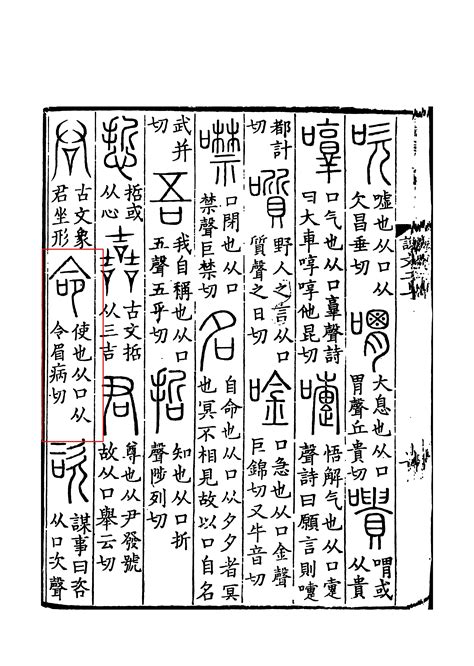 吹
噓也从口从
欠昌垂切
喟
大息也从口
胃聲丘貴切
嘳
喟或
从貴
啍
口气也从口𦎫聲詩
曰大車啍啍他昆切
嚏
悟解气也从口疐
聲詩曰願言則嚏
都計
切
野人之言从口
質聲之日切
唫
口急也从口金聲
巨錦切又牛音切
噤
口閉也从口
禁聲巨禁切
名
自命也从口从夕夕者冥
也冥不相見故以口自名
武并
切
吾
我自稱也从口
五聲五乎切
哲
知也从口折
聲陟列切
悊
哲或
从心
嚞
古文哲
从三吉
君
尊也从尹發號
故从口舉云切
古文象
君坐形
命
使也从口从
令眉病切
咨
謀事曰咨
从口次聲